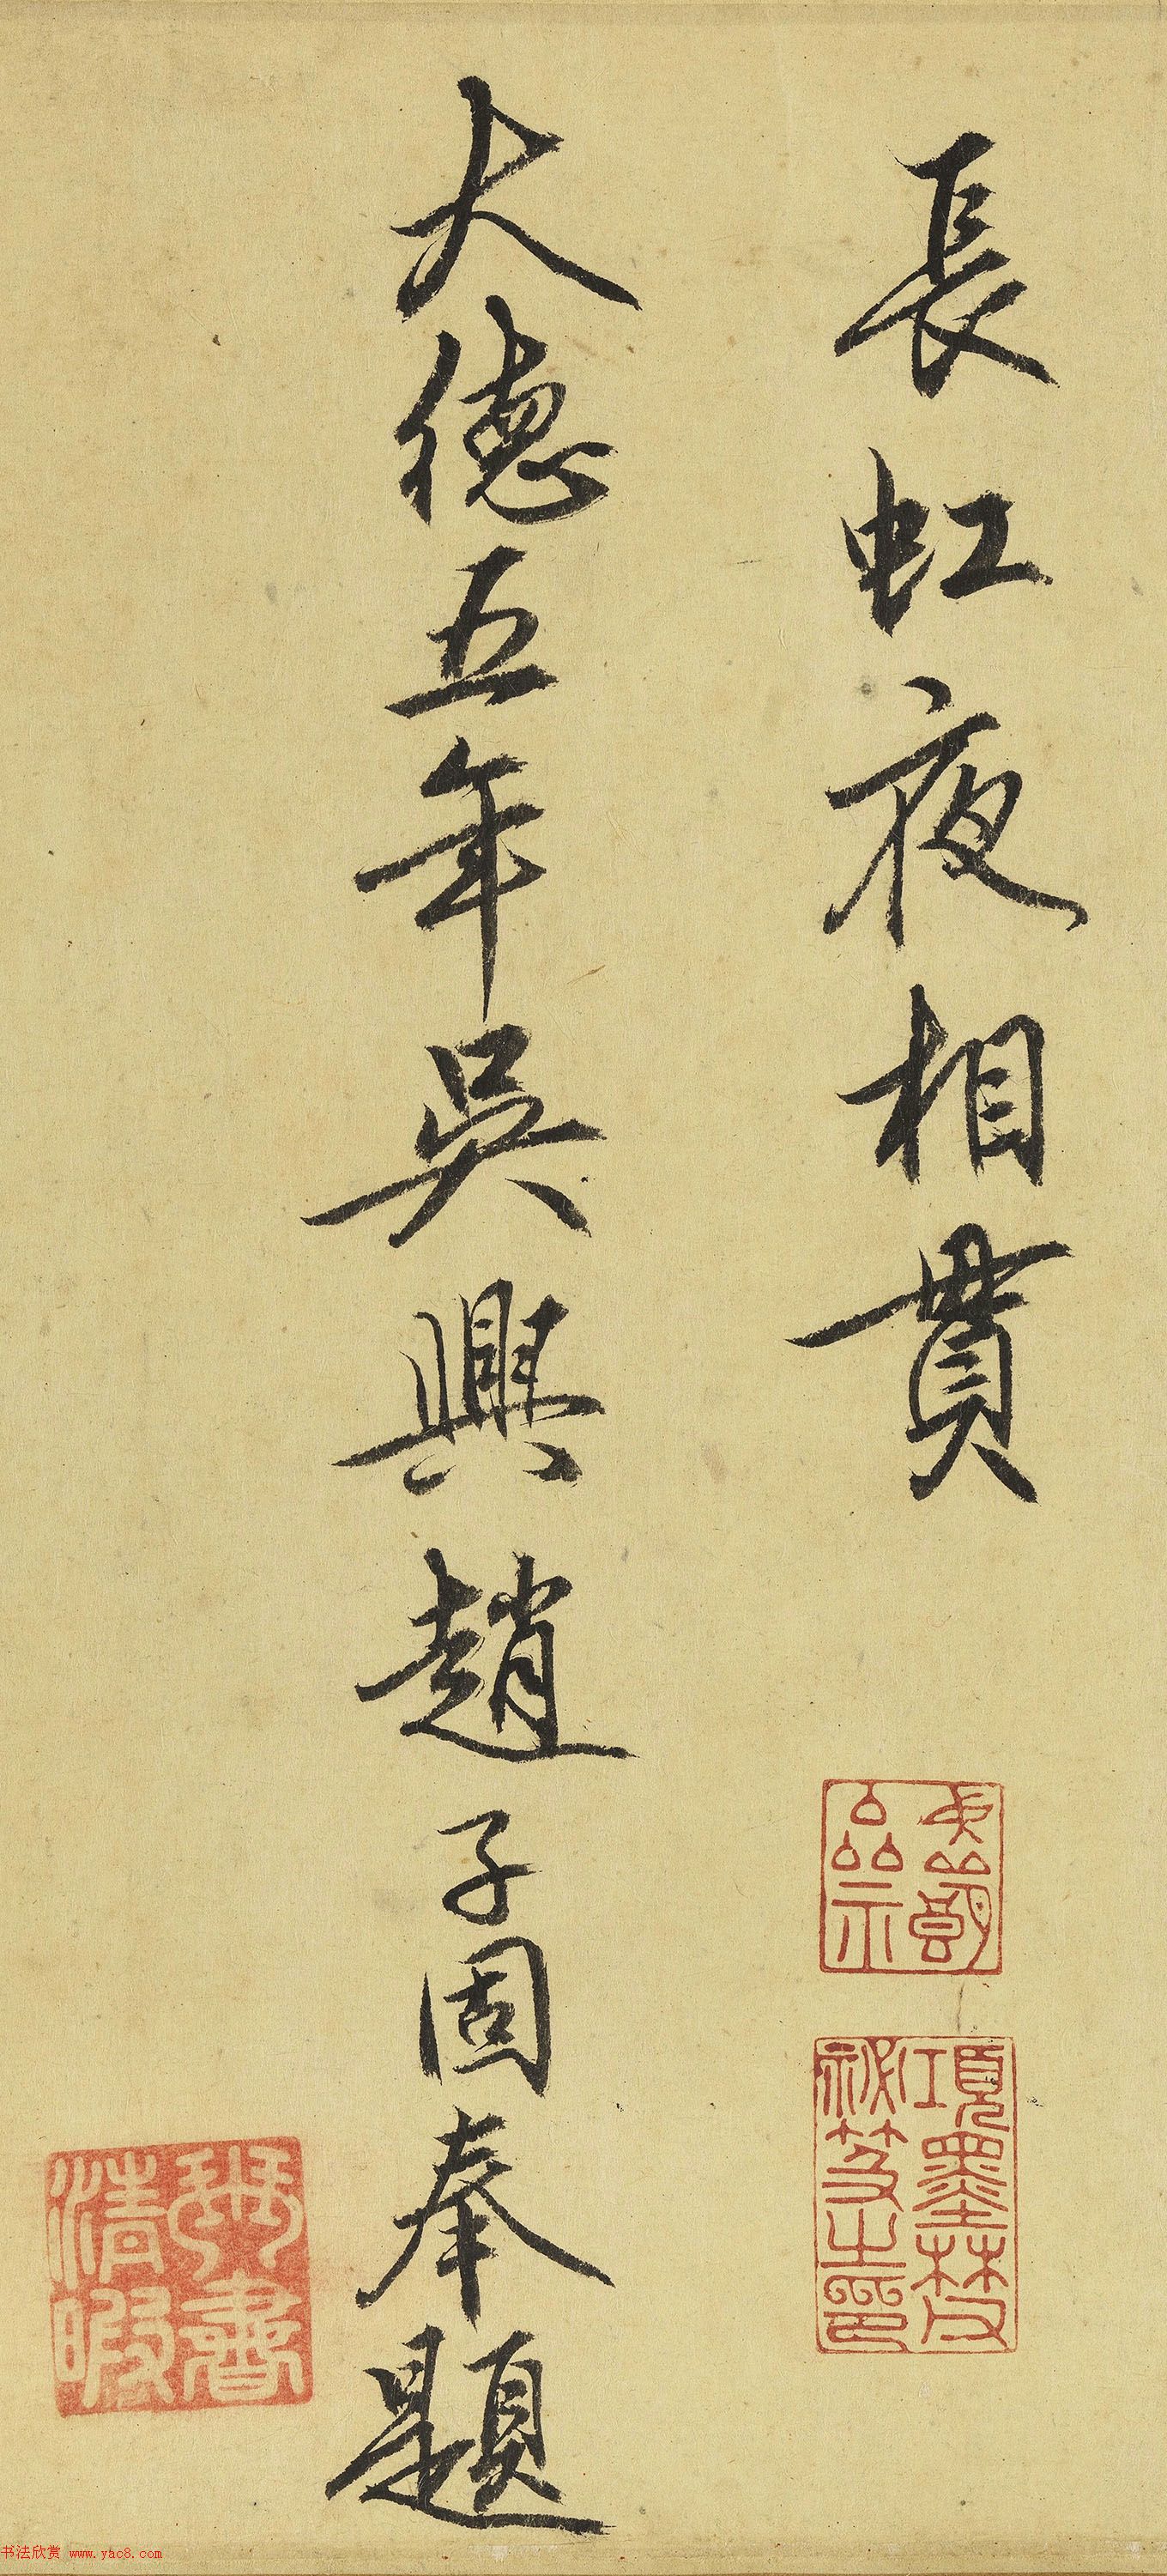 長虹夜相貫
大德五年吳興趙子固奉題
項墨林父
祕笈之印
琴書
清暇
书法欣赏 www.yac8.com